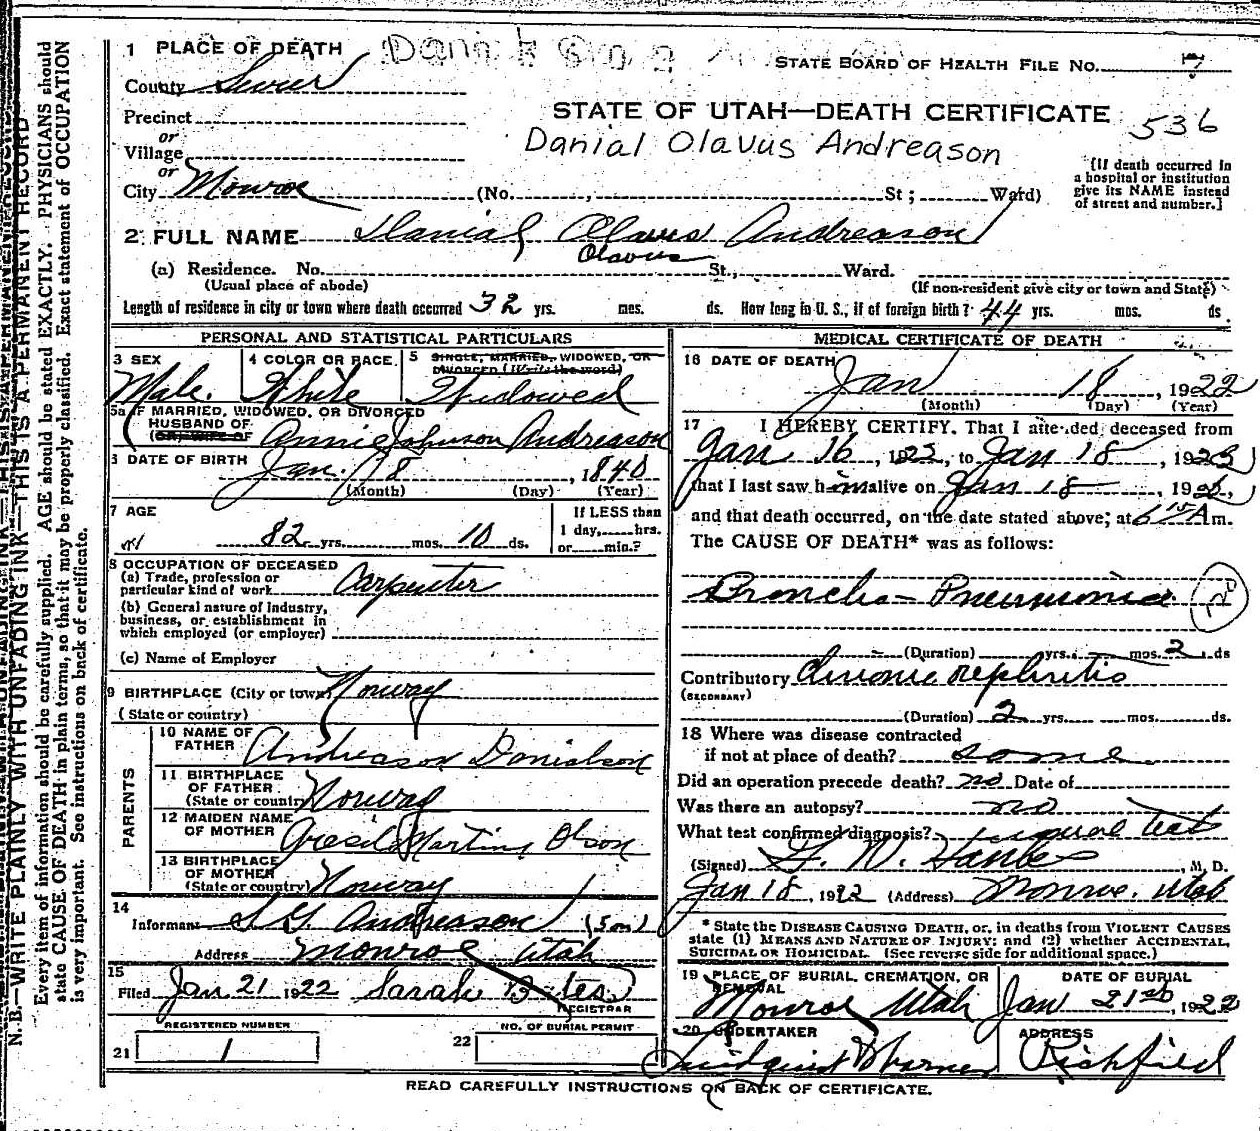 1 PLACE OF DEATH
STATE BOARD OF HEALTH FILE No. 7
County Sevier
STATE OF UTAH—DEATH CERTIFICATE 536
Precinct
Danial Olavus Andreason
or
Village
or
City Monroe (No. , St ; Ward)
[If death occurred in
a hospital or institution
give its NAME instead
of street and number.]
2 FULL NAME Danial Olavus Andreason
Olavus
(a) Residence. No. St., Ward.
(Usual place of abode) (If non-resident give city or town and State)
Length of residence in city or town where death occurred 32 yrs. mos. ds. How long in U. S., if of foreign birth? 44 yrs. mos. ds.
PERSONAL AND STATISTICAL PARTICULARS
3 SEX
Male
4 COLOR OR RACE
White
5 SINGLE, MARRIED, WIDOWED, OR
DIVORCED (Write the word)
Widowed
5a IF MARRIED, WIDOWED, OR DIVORCED
HUSBAND OF
(OR) WIFE OF Annie Johnson Andreason
6 DATE OF BIRTH Jan. 8, 1840
(Month) (Day) (Year)
7 AGE
82 yrs. mos. 10 ds.
If LESS than
1 day, hrs.
or min.?
8 OCCUPATION OF DECEASED
(a) Trade, profession or
particular kind of work Carpenter
(b) General nature of Industry,
business, or establishment in
which employed (or employer)
(c) Name of Employer
9 BIRTHPLACE (City or town) Norway
(State or country)
PARENTS
10 NAME OF
FATHER Andreason Danielson
11 BIRTHPLACE
OF FATHER
(State or country) Norway
12 MAIDEN NAME
OF MOTHER Martine Olson
13 BIRTHPLACE
OF MOTHER
(State or country) Norway
14
Informant Andreason (Son)
Address Monroe Utah
15
Filed Jan 21 1922 Sarah Bates
REGISTRAR
REGISTERED NUMBER
21 1
NO. OF BURIAL PERMIT
22
MEDICAL CERTIFICATE OF DEATH
16 DATE OF DEATH
Jan 18, 1922
(Month) (Day) (Year)
17 I HEREBY CERTIFY, That I attended deceased from
Jan 16, 1922, to Jan 18, 192
that I last saw him alive on Jan 18, 192
and that death occurred, on the date stated above, at 6 15 A m.
The CAUSE OF DEATH* was as follows:
Broncho-Pneumonia
(Duration) yrs. mos. 2 ds
Contributory chronic nephritis
(SECONDARY)
(Duration) 2 yrs. mos. ds.
18 Where was disease contracted
if not at place of death? same
Did an operation precede death? no Date of
Was there an autopsy? no
What test confirmed diagnosis? test
(Signed) , M. D.
Jan 18, 1922 (Address) Monroe, Utah
* State the DISEASE CAUSING DEATH, or, in deaths from VIOLENT CAUSES
state (1) MEANS AND NATURE OF INJURY; and (2) whether ACCIDENTAL,
SUICIDAL OR HOMICIDAL. (See reverse side for additional space.)
19 PLACE OF BURIAL, CREMATION, OR
REMOVAL
Monroe Utah
DATE OF BURIAL
Jan 21st, 1922
20 UNDERTAKER
ADDRESS
Richfield
READ CAREFULLY INSTRUCTIONS ON BACK OF CERTIFICATE.
N. B.—WRITE PLAINLY WITH UNFADING INK—THIS IS A PERMANENT RECORD
Every item of information should be carefully supplied. AGE should be stated EXACTLY. PHYSICIANS should
state CAUSE OF DEATH in plain terms, so that it may be properly classified. Exact statement of OCCUPATION
is very important. See instructions on back of certificate.